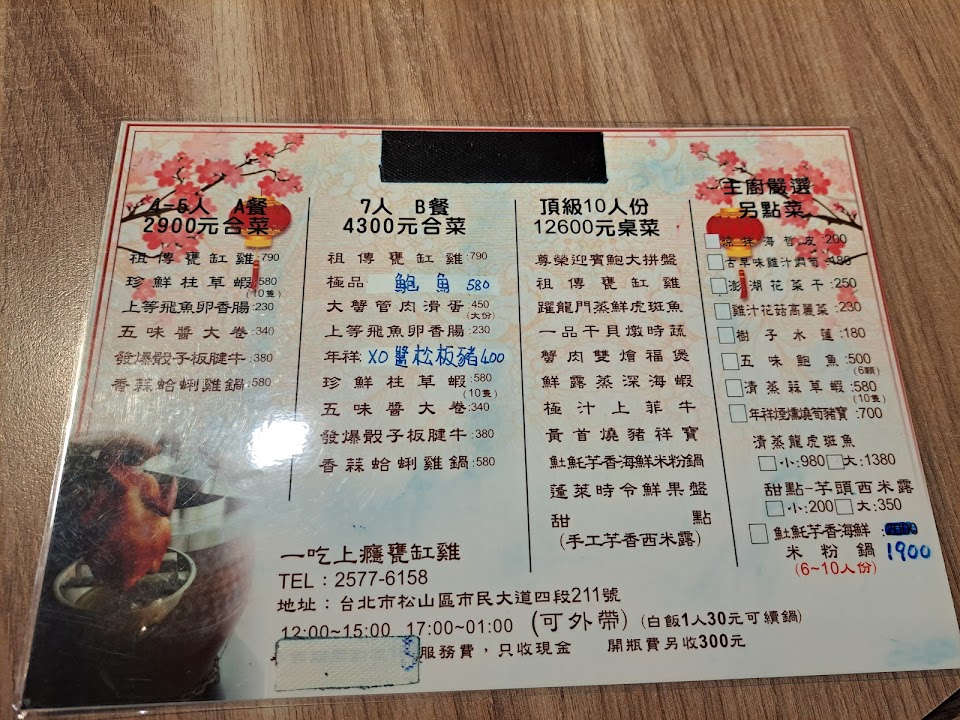 4-5人 A餐
2900元合菜
祖傳甕缸雞:790
珍鮮柱草蝦:580
(10隻)
上等飛魚卵香腸:230
五味醬大卷:340
發爆骰子板腱牛:380
香蒜蛤蜊雞鍋:580
7人 B餐
4300元合菜
祖傳甕缸雞:790
極品 鮑魚 580
大蟹管肉滑蛋:450
(大份)
上等飛魚卵香腸:230
年祥 XO醬松板豬400
珍鮮柱草蝦:580
(10隻)
五味醬大卷:340
發爆骰子板腱牛:380
香蒜蛤蜊雞鍋:580
頂級10人份
12600元桌菜
尊榮迎賓鮑大拼盤
祖傳甕缸雞
躍龍門蒸鮮虎斑魚
一品干貝燉時蔬
蟹肉雙燴福煲
鮮露蒸深海蝦
極汁上菲牛
黃首燒豬祥寶
魠魠芋香海鮮米粉鍋
蓬萊時令鮮果盤
甜點
(手工芋香西米露)
主廚嚴選
另點菜
海哲皮:200
古早味雞汁燜筍:180
澎湖花菜干:250
雞汁花菇高麗菜:230
樹子水蓮:180
五味鮑魚:500
(6顆)
清蒸蒜草蝦:580
(10隻)
年祥煙燻燒筍豬寶:700
清蒸龍虎斑魚
小:980 大:1380
甜點-芋頭西米露
小:200 大:350
魠魠芋香海鮮:
米粉鍋 1900
(6~10人份)
一吃上癮甕缸雞
TEL:2577-6158
地址:台北市松山區市民大道四段211號
12:00~15:00 17:00~01:00 (可外帶) (白飯1人30元可續鍋)
服務費,只收現金 開瓶費另收300元